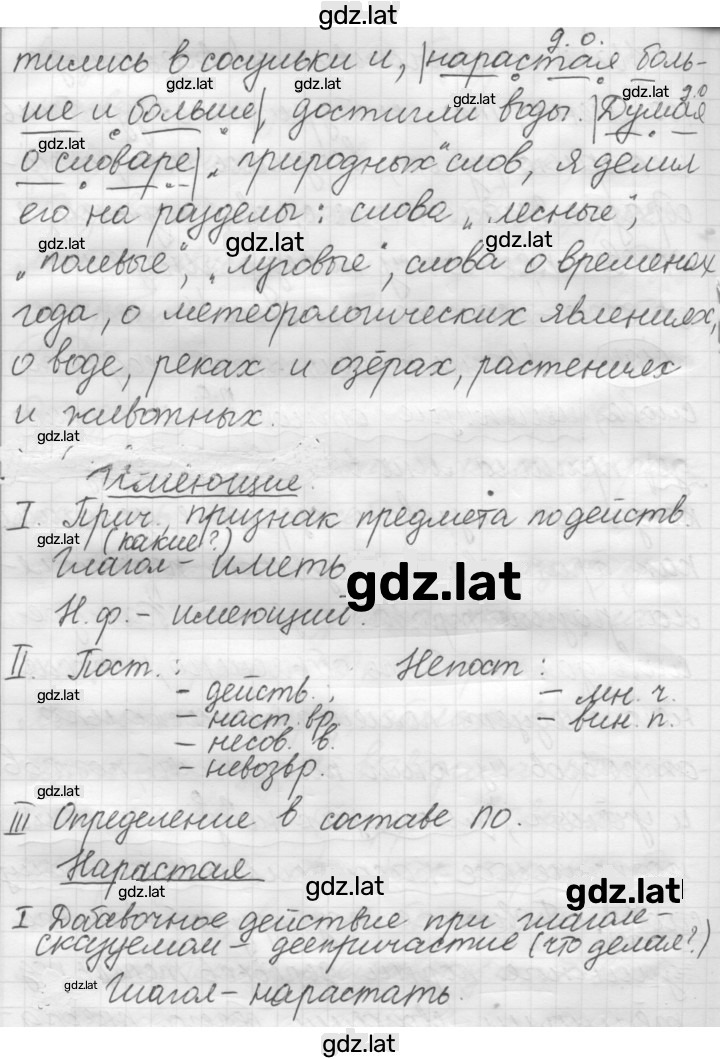 gdz.lat
д. о.
тились в сосульки и, |нарастая боль-
gdz.lat gdz.lat gdz.lat gdz.lat д.о
ше и больше|, достигли воды. |Думая
gdz.lat
о словаре| „природных“ слов, я делил
его на разделы: слова „лесные“,
gdz.lat gdz.lat gdz.lat
„полевые“, „луговые“, слова о временах
года, о метеорологических явлениях,
о воде, реках и озёрах, растениях
и животных.
gdz.lat
Имеющие.
I. Прич., признак предмета по действ.
gdz.lat (какие?)
Глагол – иметь
gdz.lat
Н.ф. – имеющий.
II. Пост. : Непост :
gdz.lat – действ., – мн. ч.
– наст. вр. – вин. п.
– несов. в.
– невозвр.
gdz.lat
III Определение в составе ПО.
Нарастая
gdz.lat gdz.lat gdz.lat
I Добавочное действие при глаголе-
сказуемом – деепричастие (что делая?)
gdz.lat Глагол – нарастать.
gdz.lat